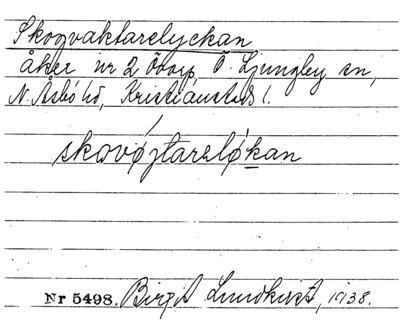 Skogvaktarelyckan
åker nr 2 Öorp, Ö. Ljungby sn,
N. Åsbo hd, Kristianstads l.
skovøjtareløkan
Nr 5498. Birgit Lundkvist, 1938.